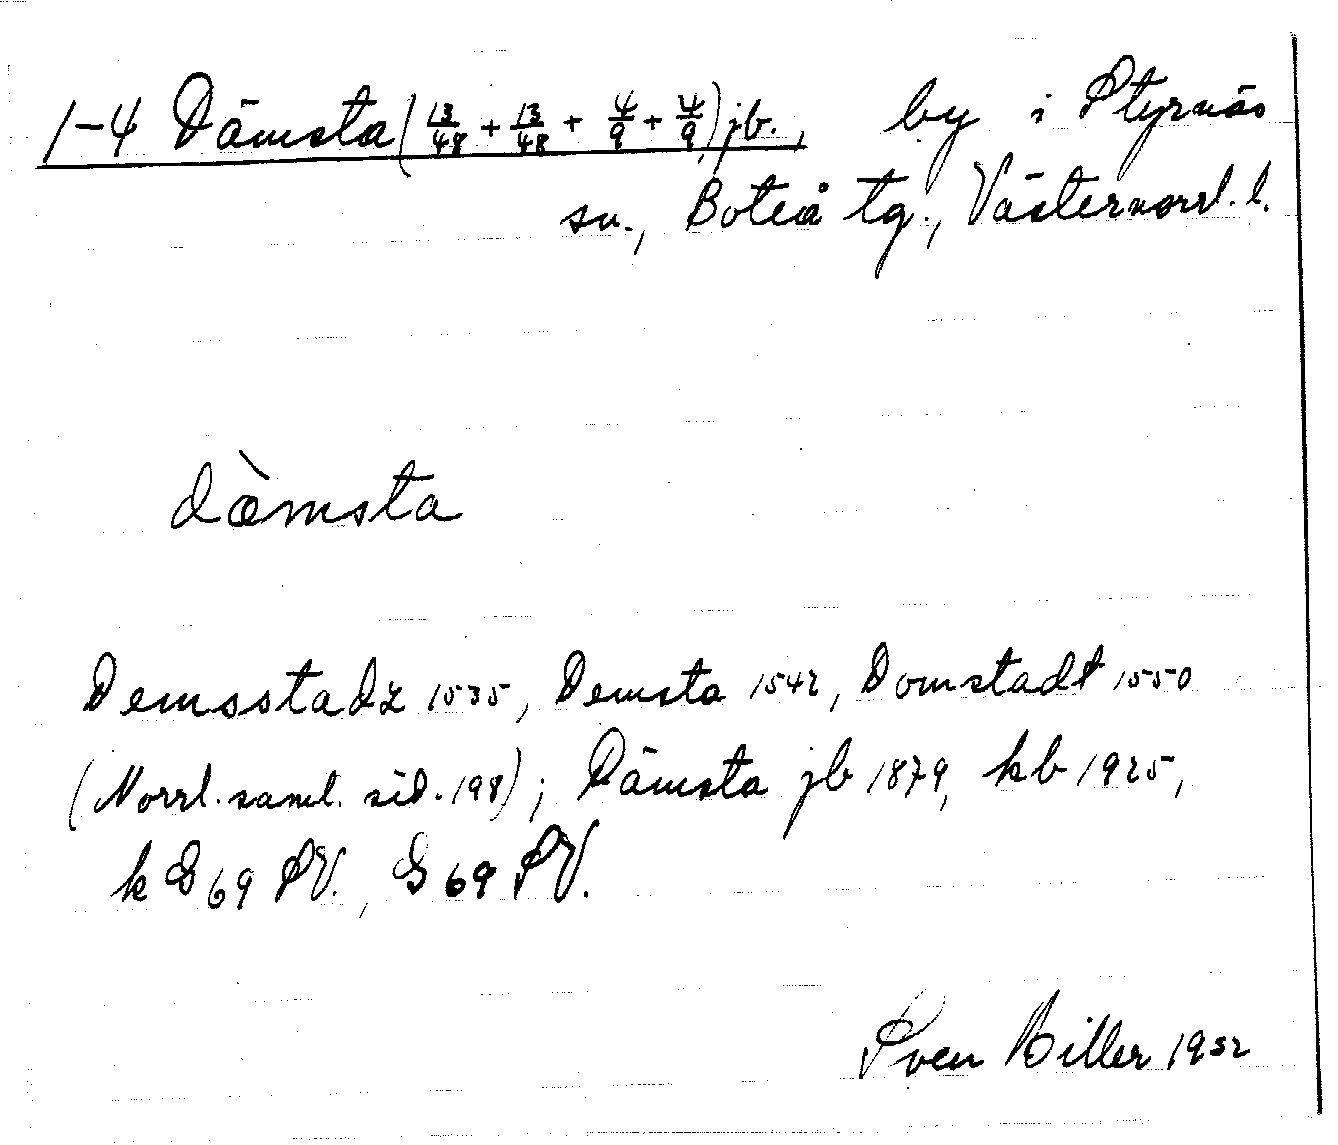 1-4 Dämsta (13/48 + 13/48 + 4/9 + 4/9) jb., by i Styrnäs
sn., Boteå tg., Västernorrl. l.
dæ̀msta
Demsstadz 1535, Demsta 1542, Domstadt 1550
(Norrl. saml. sid. 198); Dämsta jb 1879, kb 1925,
k G 69 SV., G 69 SV.
Sven Biller 1952